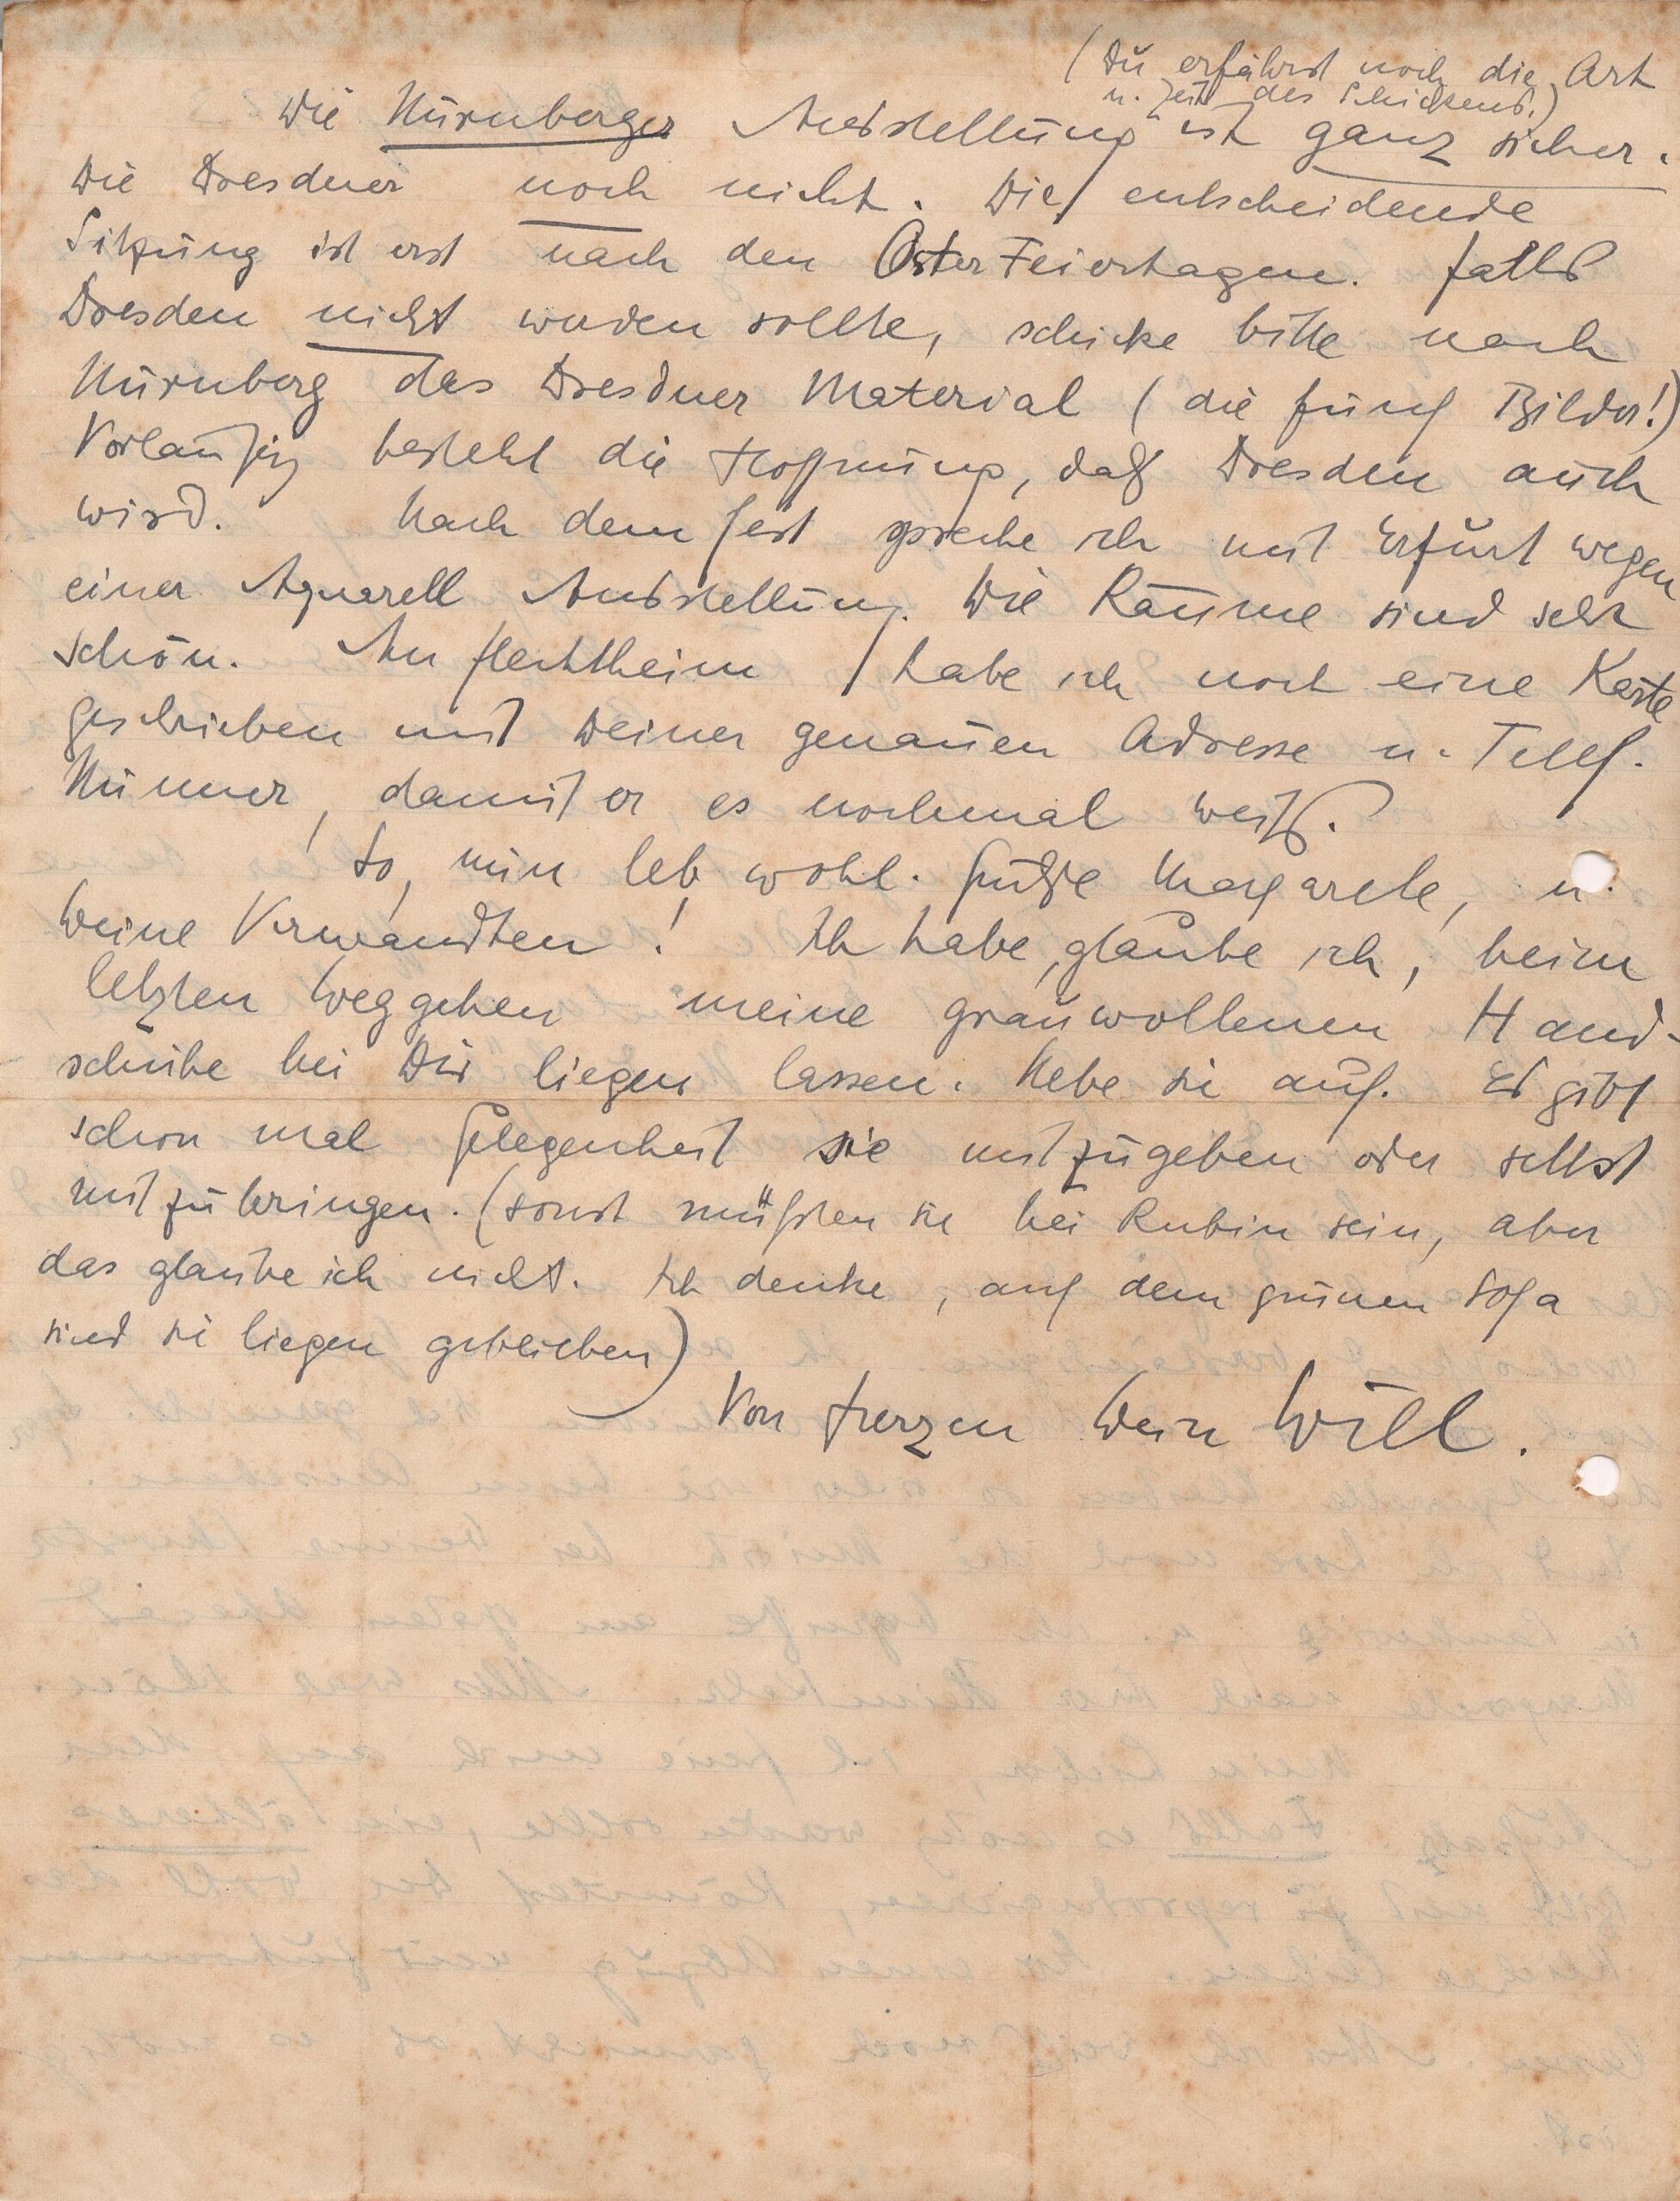 (Du erfährst noch die Art
u. Zeit des Schickens.)
Die Nürnberger Ausstellung ist ganz sicher.
Die Dresdner noch nicht. Die entscheidende
Sitzung ist erst nach den Oster Feiertagen. Falls
Dresden nicht werden sollte, schicke bitte nach
Nürnberg das Dresdner Material (die fünf Bilder!)
Vorläufig besteht die Hoffnung, daß Dresden auch
wird. Nach dem Fest spreche ich mit Erfurt wegen
einer Aquarell Ausstellung. Die Räume sind sehr
schön. An Flechtheim habe ich noch eine Karte
geschrieben mit Deiner genauen Adresse u. Telef.
Nummer, damit er es nochmal weiß.
So, nun leb wohl. Grüße Margarete, u.
Deine Verwandten! Ich habe, glaube ich, beim
letzten Weggehen meine grauwollenen Hand-
schuhe bei Dir liegen lassen. Hebe sie auf. Es gibt
schon mal Gelegenheit sie mitzugeben oder selbst
mitzubringen. (Sonst müßten sie bei Rubin sein, aber
das glaube ich nicht. Ich denke, auf dem grünen Sofa
sind sie liegen geblieben)
Von Herzen Dein Will.